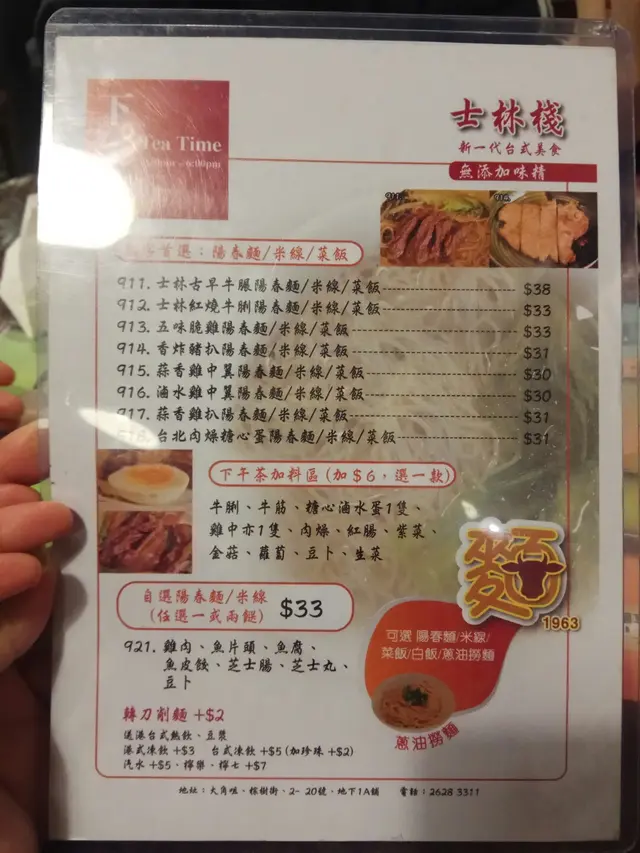 Tea Time
士林棧
新一代台式美食
無添加味精
首選：陽春麵/米線/菜飯
911. 士林古早牛腩陽春麵/米線/菜飯 $38
912. 士林紅燒牛脷陽春麵/米線/菜飯 $33
913. 五味脆雞陽春麵/米線/菜飯 $33
914. 香炸豬扒陽春麵/米線/菜飯 $31
915. 蒜香雞中翼陽春麵/米線/菜飯 $30
916. 滷水雞中翼陽春麵/米線/菜飯 $30
917. 蒜香雞扒陽春麵/米線/菜飯 $31
918. 台北肉燥糖心蛋陽春麵/米線/菜飯 $31
下午茶加料區 (加$6，選一款)
牛脷、牛筋、糖心滷水蛋1隻、
雞中亦1隻、肉燥、紅腸、紫菜、
金菇、蘿蔔、豆卜、生菜
自選陽春麵/米線
(任選一或兩餸) $33
921. 雞肉、魚片頭、魚腐、
魚皮餃、芝士腸、芝士丸、
豆卜
麵
1963
可選 陽春麵/米線/
菜飯/白飯/蔥油撈麵
蔥油撈麵
轉刀削麵 +$2
送港台式熱飲、豆漿
港式凍飲 +$3 台式凍飲 +$5 (加珍珠 +$2)
汽水 +$5．檸樂．檸七 +$7
地址：大角咀．槺樹街．2- 20號．地下1A舖 電話：2628 3311